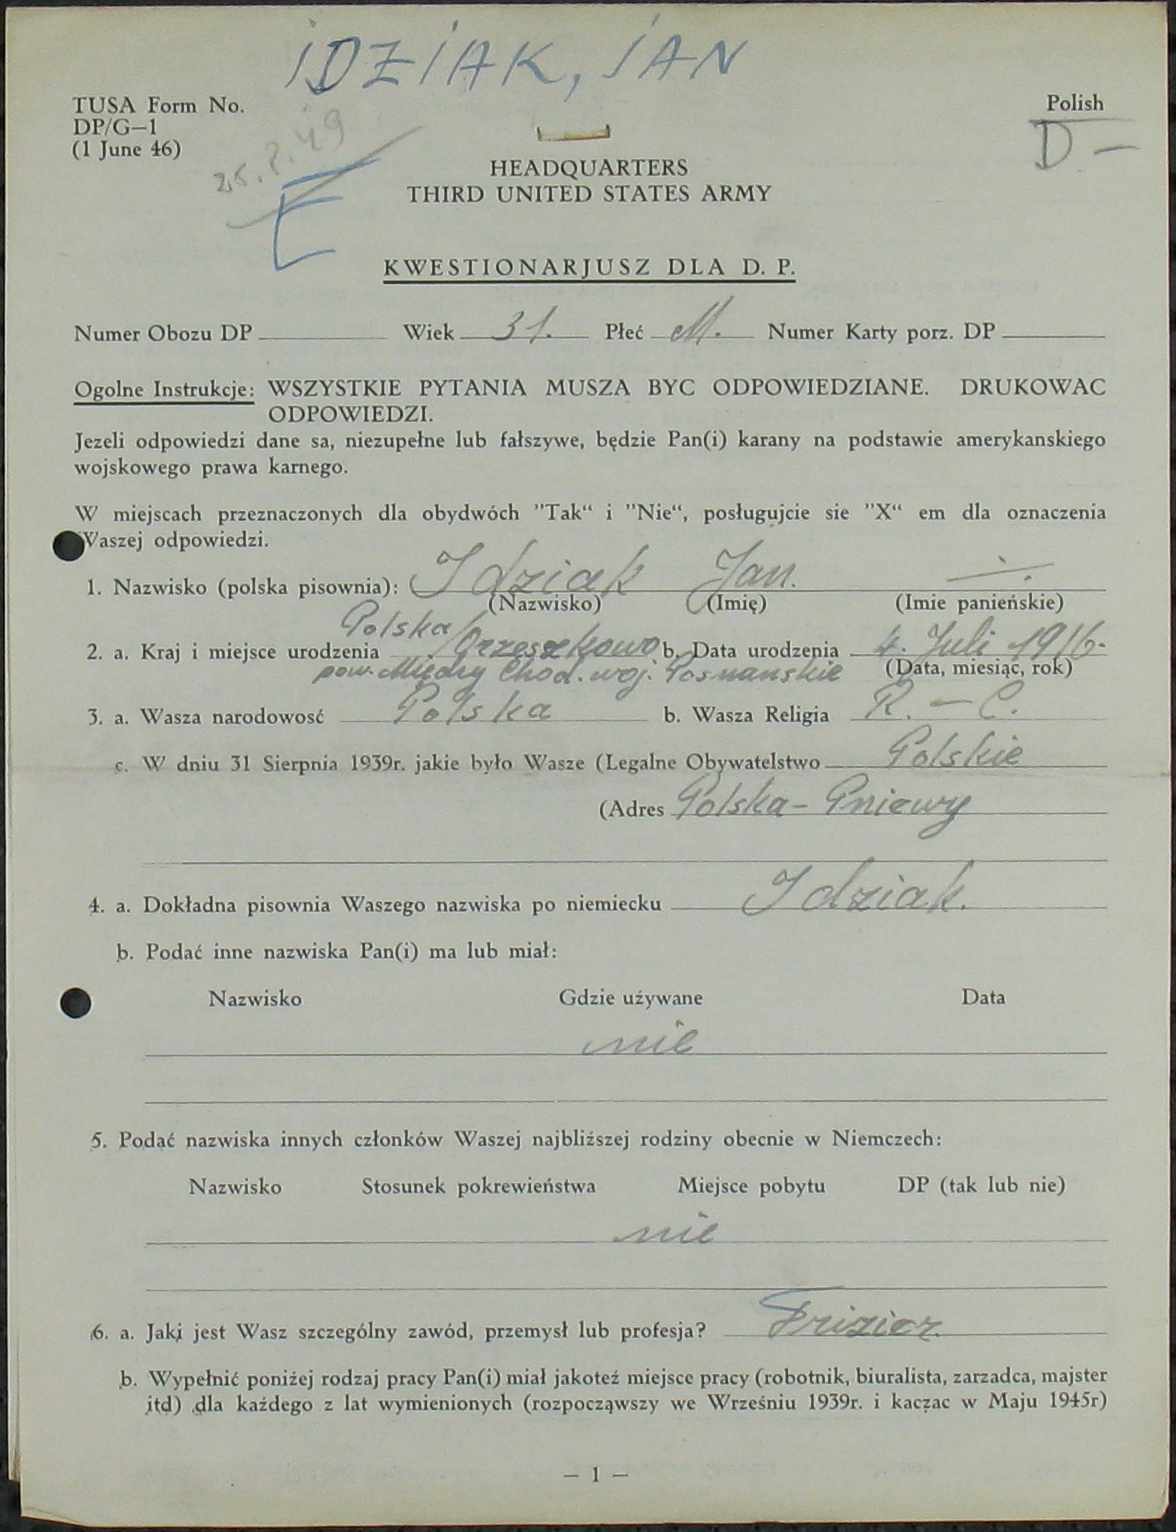 IDZIAK, JAN
TUSA Form No.
DP/G—1
(1 June 46)
Polish
D —
25.?.49
E
HEADQUARTERS
THIRD UNITED STATES ARMY
KWESTIONARJUSZ DLA D. P.
Numer Obozu DP Wiek 31. Płeć M. Numer Karty porz. DP
Ogolne Instrukcje: WSZYSTKIE PYTANIA MUSZA BYC ODPOWIEDZIANE. DRUKOWAC
ODPOWIEDZI.
Jezeli odpowiedzi dane sa, niezupełne lub fałszywe, będzie Pan(i) karany na podstawie amerykanskiego
wojskowego prawa karnego.
W miejscach przeznaczonych dla obydwóch "Tak“ i "Nie“, posługujcie sie "X“ em dla oznaczenia
Waszej odpowiedzi.
1. Nazwisko (polska pisownia): Idziak Jan.
(Nazwisko) (Imię) (Imie panieńskie)
2. a. Kraj i miejsce urodzenia Polska/Orzeszkowo b. Data urodzenia 4. Juli 1916.
pow. Między Chod. woj. Posnanskie (Data, miesiąc, rok)
3. a. Wasza narodowosć Polska b. Wasza Religia R. — C.
c. W dniu 31 Sierpnia 1939r. jakie było Wasze (Legalne Obywatelstwo Polskie
(Adres Polska - Pniewy
4. a. Dokładna pisownia Waszego nazwiska po niemiecku Idziak.
b. Podać inne nazwiska Pan(i) ma lub miał:
Nazwisko Gdzie używane Data
nie
5. Podać nazwiska innych członków Waszej najbliższej rodziny obecnie w Niemczech:
Nazwisko Stosunek pokrewieństwa Miejsce pobytu DP (tak lub nie)
nie
6. a. Jaki jest Wasz szczególny zawód, przemysł lub profesja? Frizier.
b. Wypełnić poniżej rodzaj pracy Pan(i) miał jakoteż miejsce pracy (robotnik, biuralista, zarzadca, majster
itd) dla każdego z lat wymienionych (rozpocząwszy we Wrześniu 1939r. i kacząc w Maju 1945r)
— 1 —